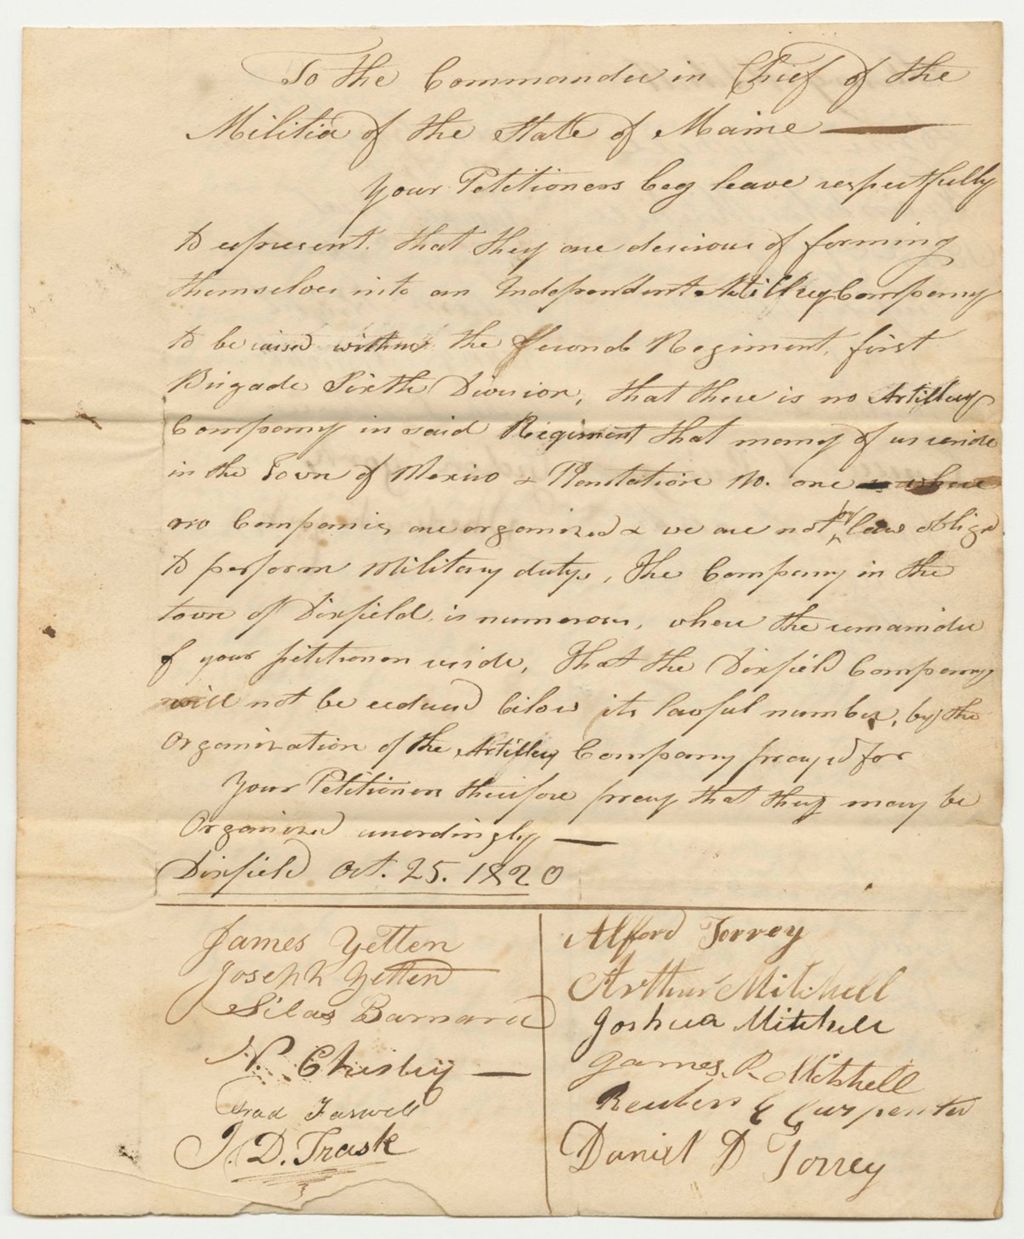 To the Commander in Chief of the
Militia of the State of Maine
Your Petitioners beg leave respectfully
to represent. that they are desirous of forming
themselves into an Independent Artillery Company
to be raised within the Second Regiment, first
Brigade Sixth Division, that there is no Artillery
Company in said Regiment that many of us reside
in the Town of Mexico & Plantation No. one where
no Companies are organized & we are not by law obliged
to perform Military duty, The Company in the
town of Dixfield is numerous, where the remainder
of your petitioners reside, That the Dixfield Company
will not be reduced below its lawful number, by the
Organization of the Artillery Company prayed for
Your Petitioners therefore pray that they may be
Organized accordingly
Dixfield Oct. 25. 1820
James Yetten
Joseph Yetten
Silas Barnard
N.
Farwell
J. D. Trask
Alford Torrey
Arthur Mitchell
Joshua Mitchell
James R. Mitchell
Reuben Carpenter
Daniel D Torrey